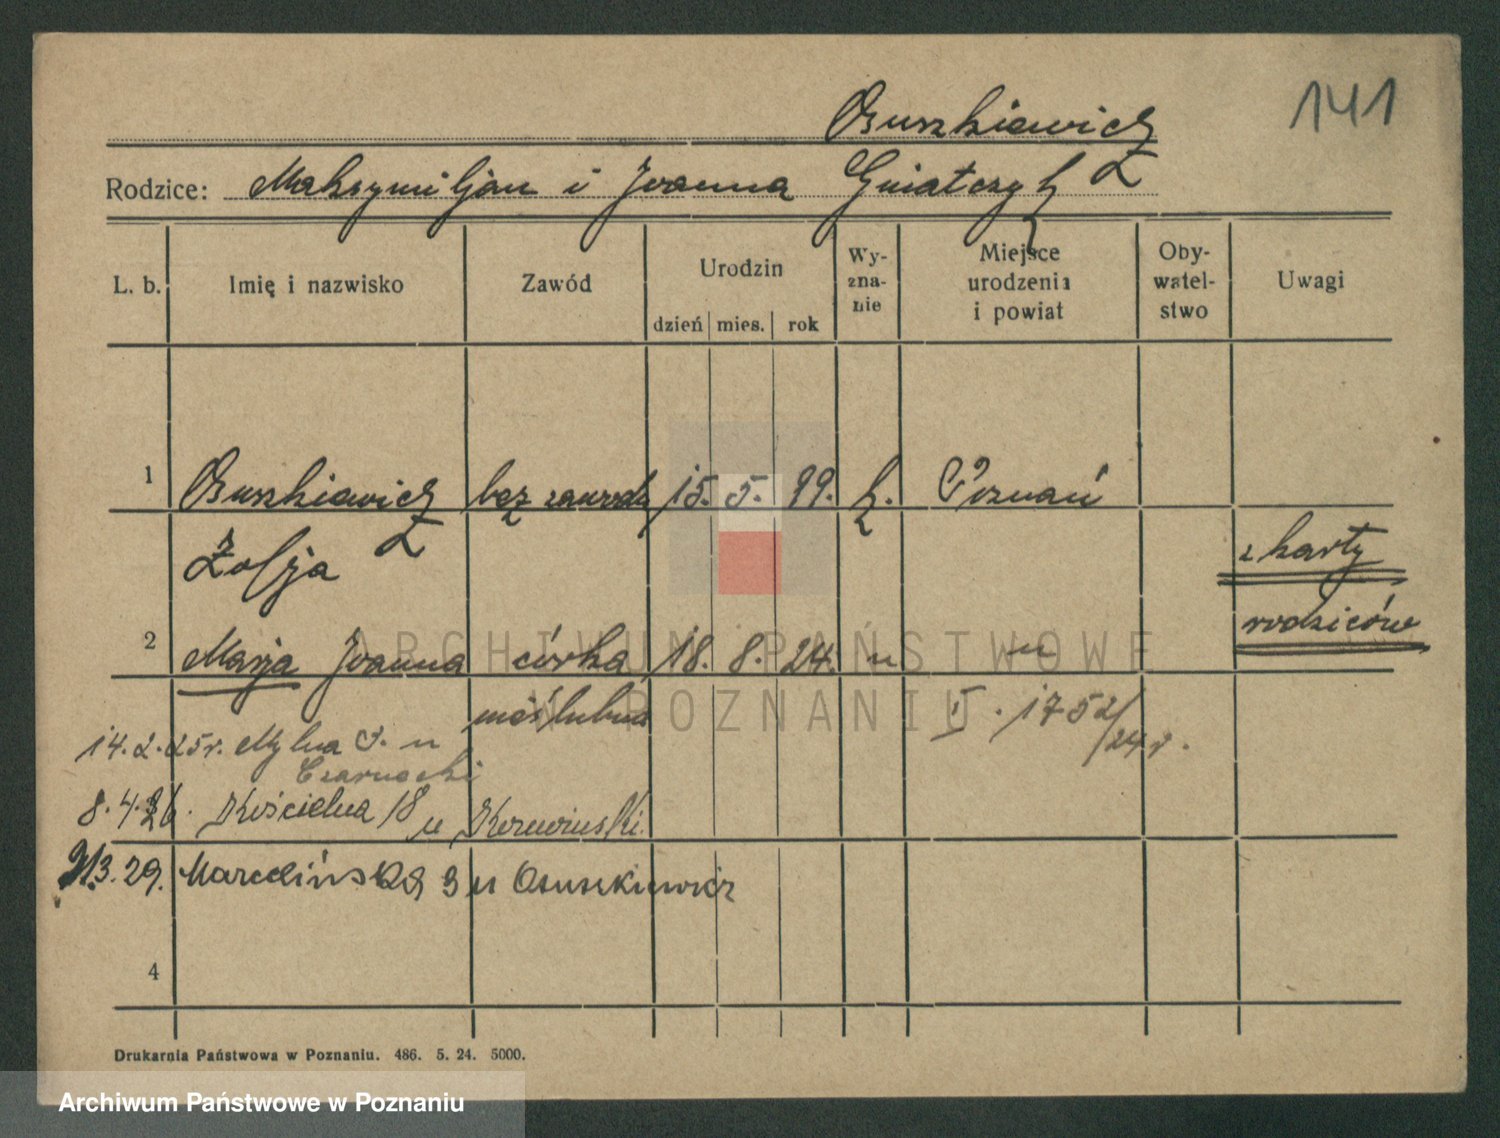 141
Osuszkiewicz
Rodzice: Maksymiljan i Joanna Gniatczyk
L. b. Imię i nazwisko Zawód Urodzin dzień mies. rok Wy-zna-nie Miejsce urodzenia i powiat Oby-watel-stwo Uwagi
1 Osuszkiewicz bez zawodu 15. 5. 99. k. Poznań
Zofja
z karty
rodziców
2 Marja Joanna córka 18. 8. 24. " "
nieślubna II. 1752/24r.
14.2.25r. Mylna 5. u
Czarnecki
8.4.26. Kościelna 18 u
3.29. Marcelińska 3 u Osuszkiewicz
4
Drukarnia Państwowa w Poznaniu. 486. 5. 24. 5000.
ARCHIWUM PAŃSTWOWE
W POZNANIU
Archiwum Państwowe w Poznaniu